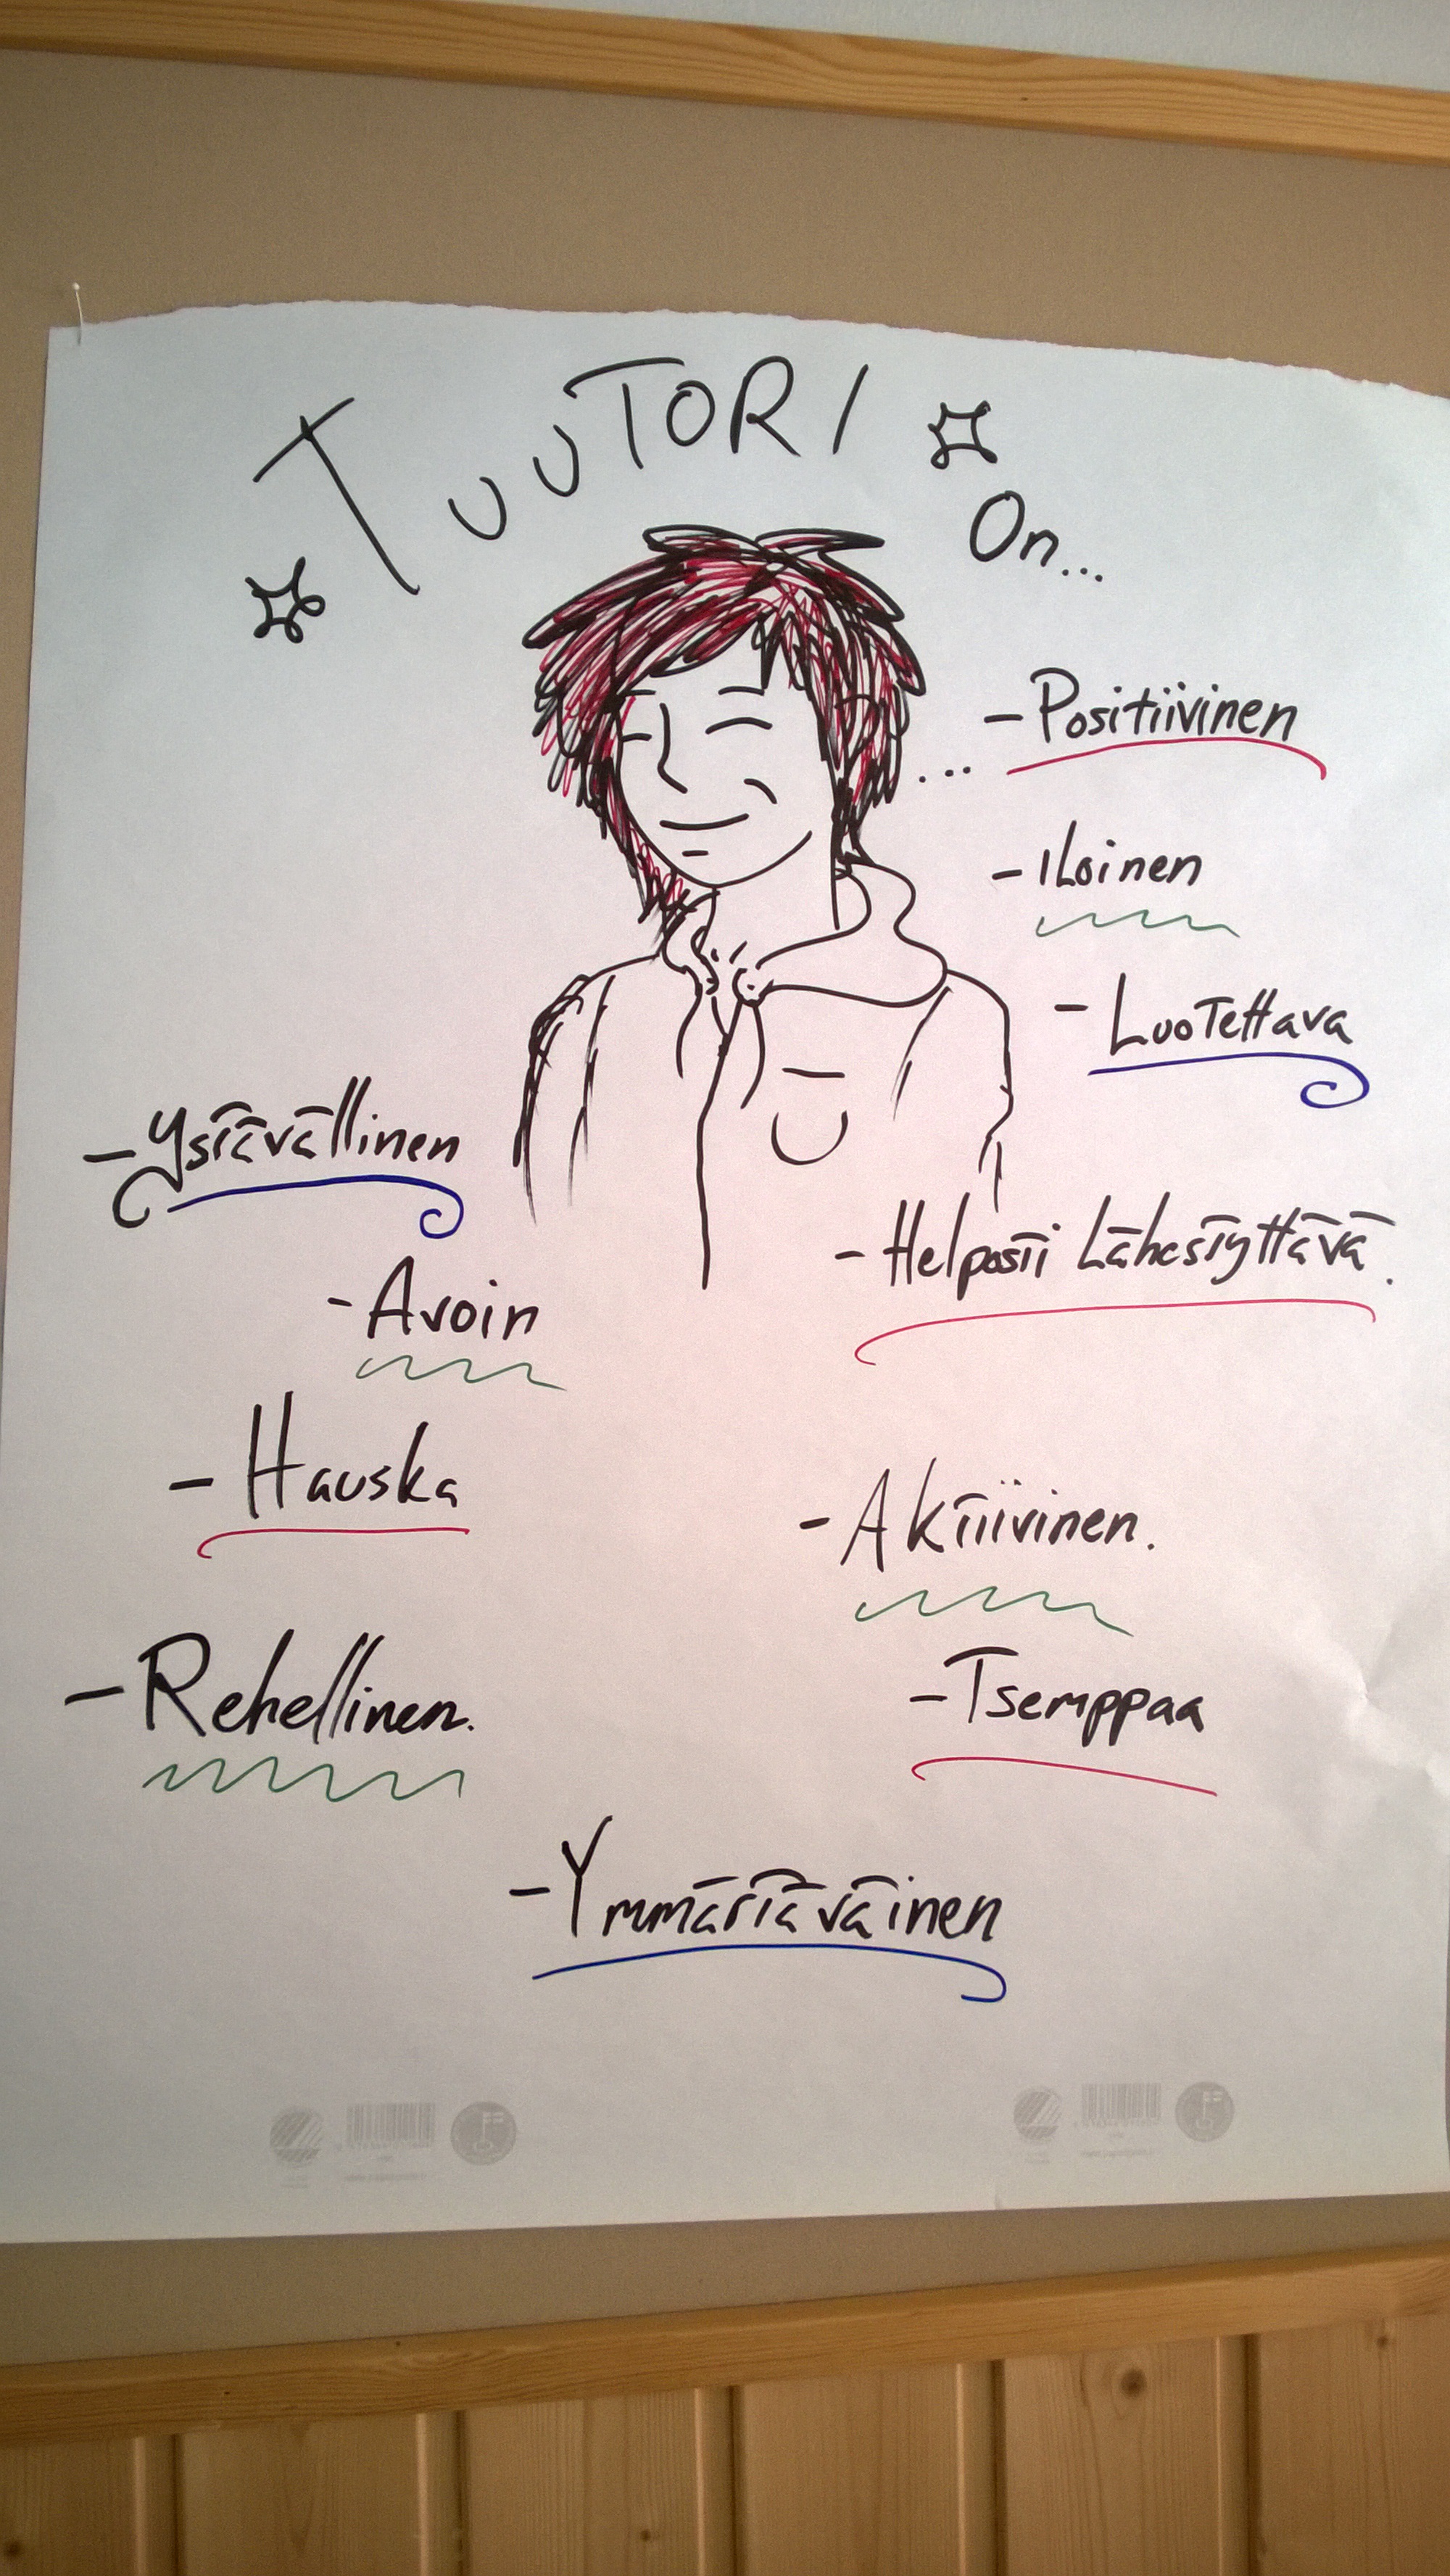 TUUTORI
On...
... - Positiivinen
- iLoinen
- Luotettava
- Ystävällinen
- Helposti Lähestyttävä.
- Avoin
- Hauska
- Aktiivinen.
- Rehellinen.
- Tsemppaa
- Ymmärtäväinen